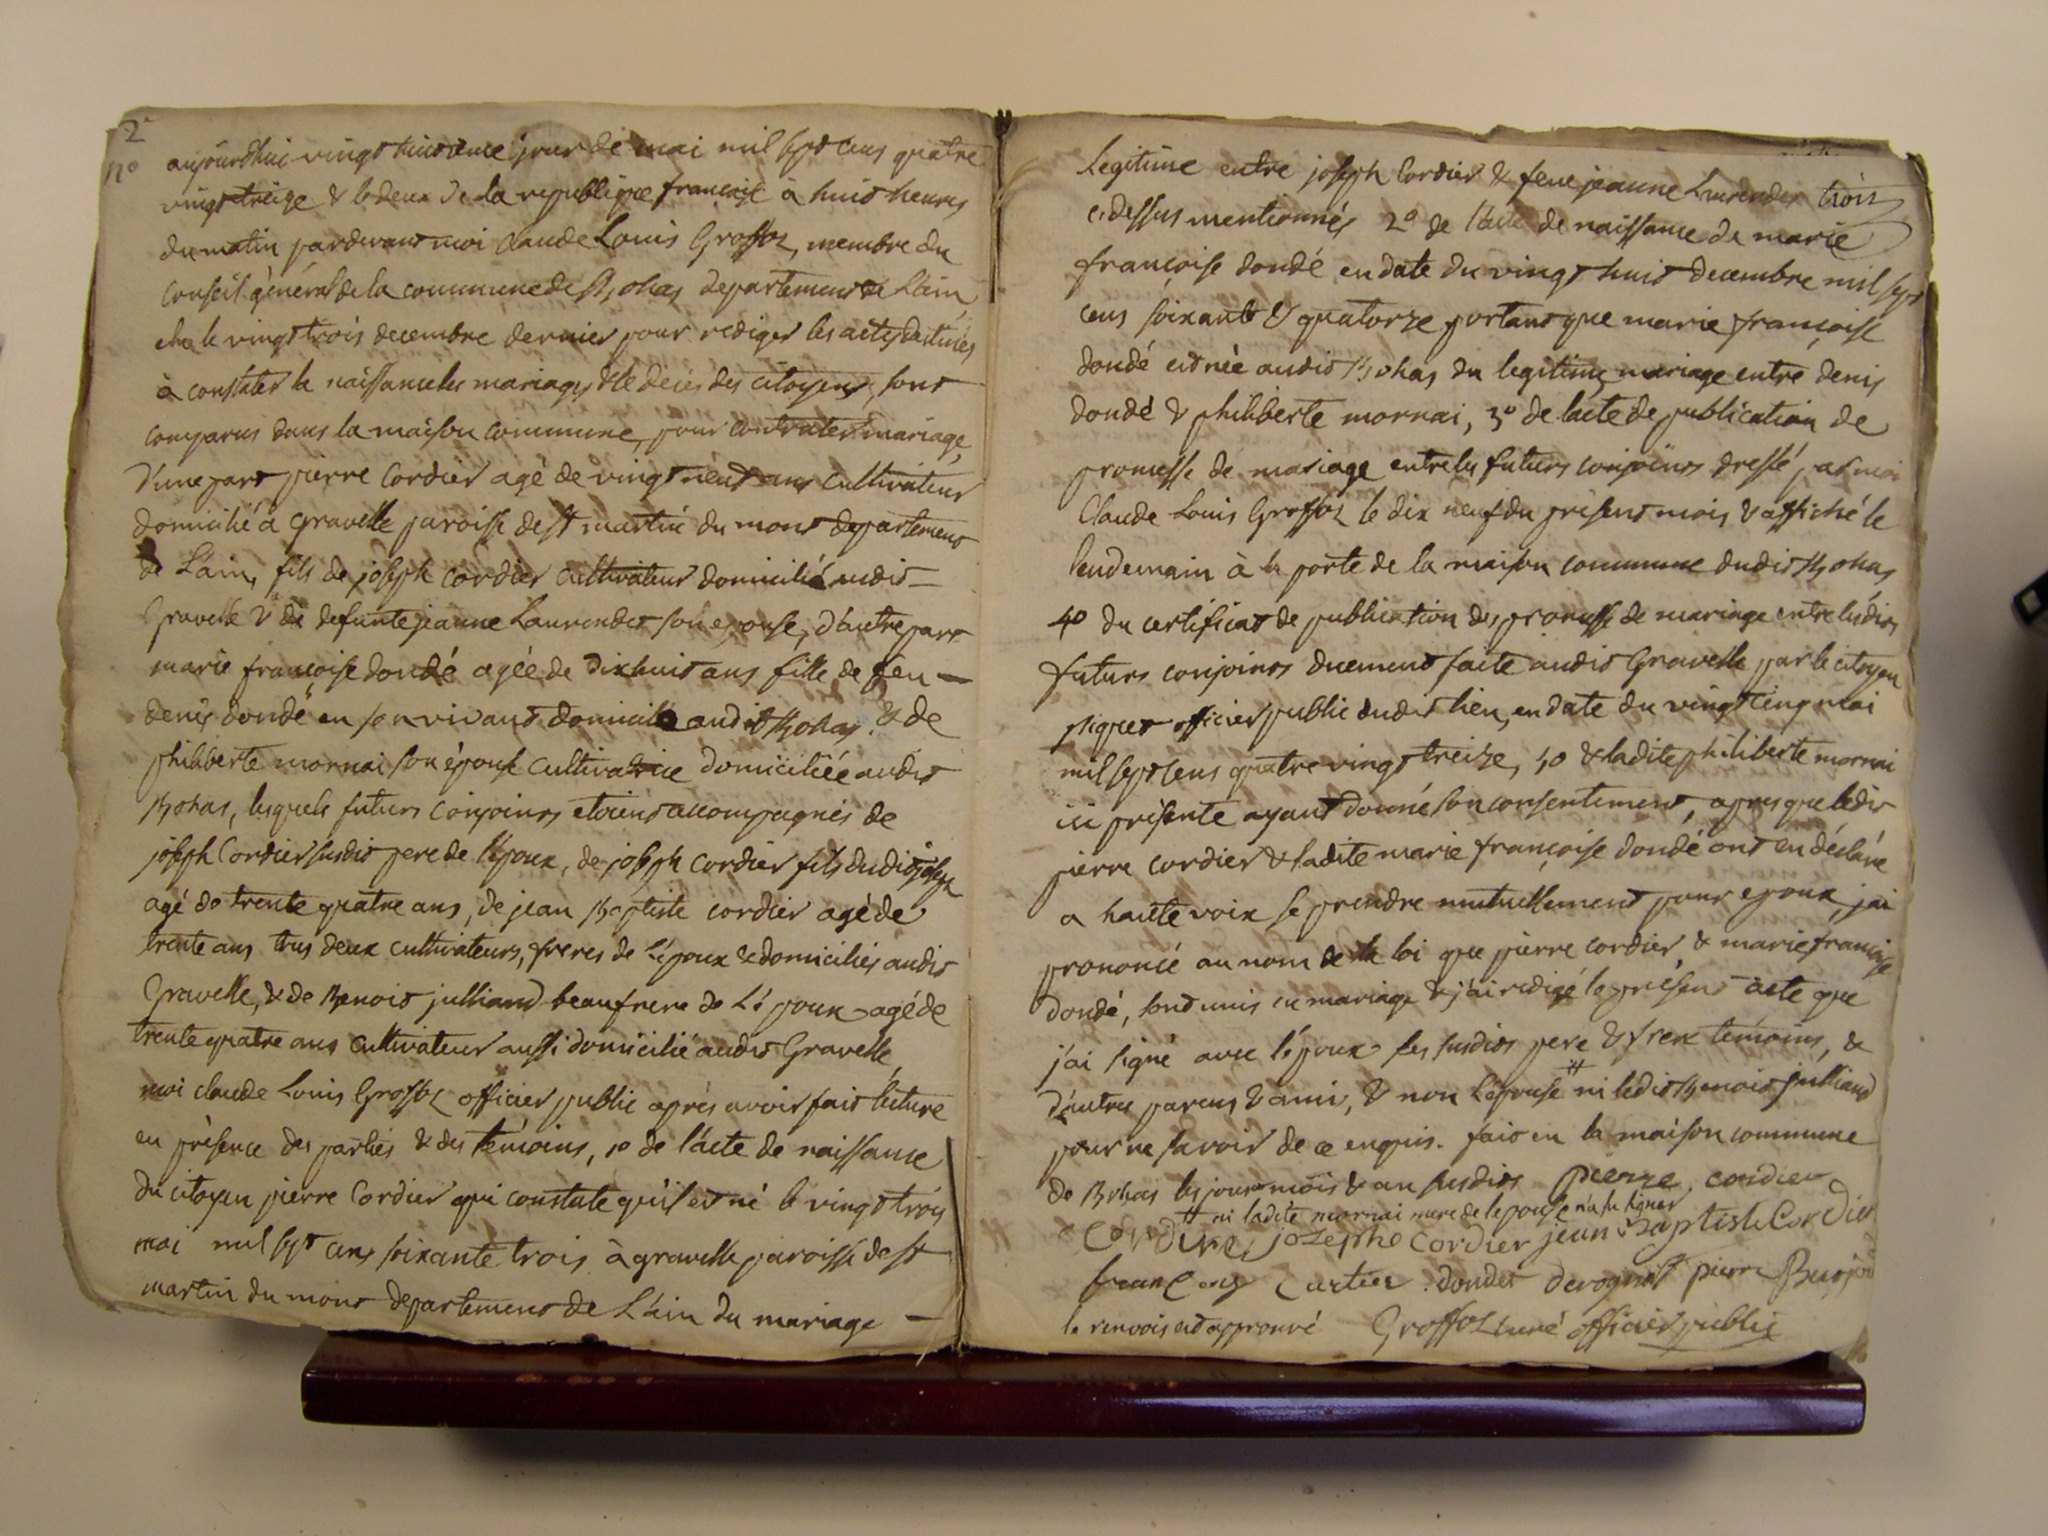 2
no
aujourdhui vingt huitieme jour de mai mil sept cens quatre
vingt treize & le deux de la republique françoise à huit heures
du matin pardevant moi Claude Louis Groffoz, membre du
Conseil général de la commune de Bohas departement de Lain
elu le vingt trois decembre dernier pour rediger les actes destinés
à constater la naissance les mariages & le décès des citoyens, sont
comparus dans la maison commune, pour contracter mariage,
D'une part pierre Cordier agé de vingt neuf ans cultivateur
domicilié à Gravelle paroisse de st martin du mont departement
de Lain, fils de joseph Cordier cultivateur domicilié audit
Gravelle & de defunte jeanne Laurendet son epouse, d'autre part
marie françoise dondé agée de dixhuit ans fille de feu
denis dondé en son vivant domicilié audit Bohas, & de
philiberte mornai son épouse cultivatrice domiciliée audit
Bohas, lesquels futurs conjoints etoient accompagnés de
joseph Cordier susdit pere de l'epoux, de joseph Cordier fils dudit joseph
agé de trente quatre ans, de jean Baptiste cordier agé de
trente ans tous deux cultivateurs, freres de l'époux & domiciliés audit
Gravelle, & de Benoit julliand beaufrere de L'époux agé de
trente quatre ans cultivateur aussi domicilié audit Gravelle
moi claude Louis Groffoz officier public après avoir fait lecture
en présence des parties & des témoins, 1o de l'acte de naissance
du citoyen pierre Cordier qui constate qu'il est né le vingt trois
mai mil sept cens soixante trois à gravelle paroisse de st
martin du mont departement de L'ain du mariage
Legitime entre joseph Cordier & feue jeanne Laurendet trois
ci dessus mentionnés 2o de l'acte de naissance de marie
françoise dondé en date du vingt huit decembre mil sept
cens soixante & quatorze portant que marie françoise
dondé est née audit Bohas du legitime mariage entre denis
dondé & philiberte mornai, 3o de l'acte de publication de
promesse de mariage entre les futurs conjoints dressé par moi
Claude Louis Groffoz le dix neuf du présent mois & affiché le
lendemain à la porte de la maison commune dudit Bohas
4o du certificat de publication des promesse de mariage entre lesdits
futurs conjoints duement faite audit Gravelle par le citoyen
piquet officier public dudit lieu, en date du vingt cinq mai
mil sept cens quatre vingt treize, 5o & ladite philiberte mornai
ici présente ayant donné son consentement, apres que ledit
pierre cordier & ladite marie françoise dondé ont eu déclaré
a haute voix se prendre mutuellement pour epoux, j'ai
prononcé au nom de la loi que pierre cordier, & marie françoise
dondé, sont unis en mariage & j'ai redigé le présent acte que
j'ai signé avec l'époux les susdits pere & frere temoins, &
d'autres parens & ami, & non l'épouse # ni ledit Benoit julliand
pour ne savoir de ce enquis. fait en la maison commune
de Bohas les jour mois & an susdits pierre cordier
# ni ladite mornai mere de lepouse n'a su signer
Cordier, jozephe Cordier jean Baptiste Cordier
francoy Cartier dondet derognat pierre
le renvois est approuvé Groffoz curé officier public